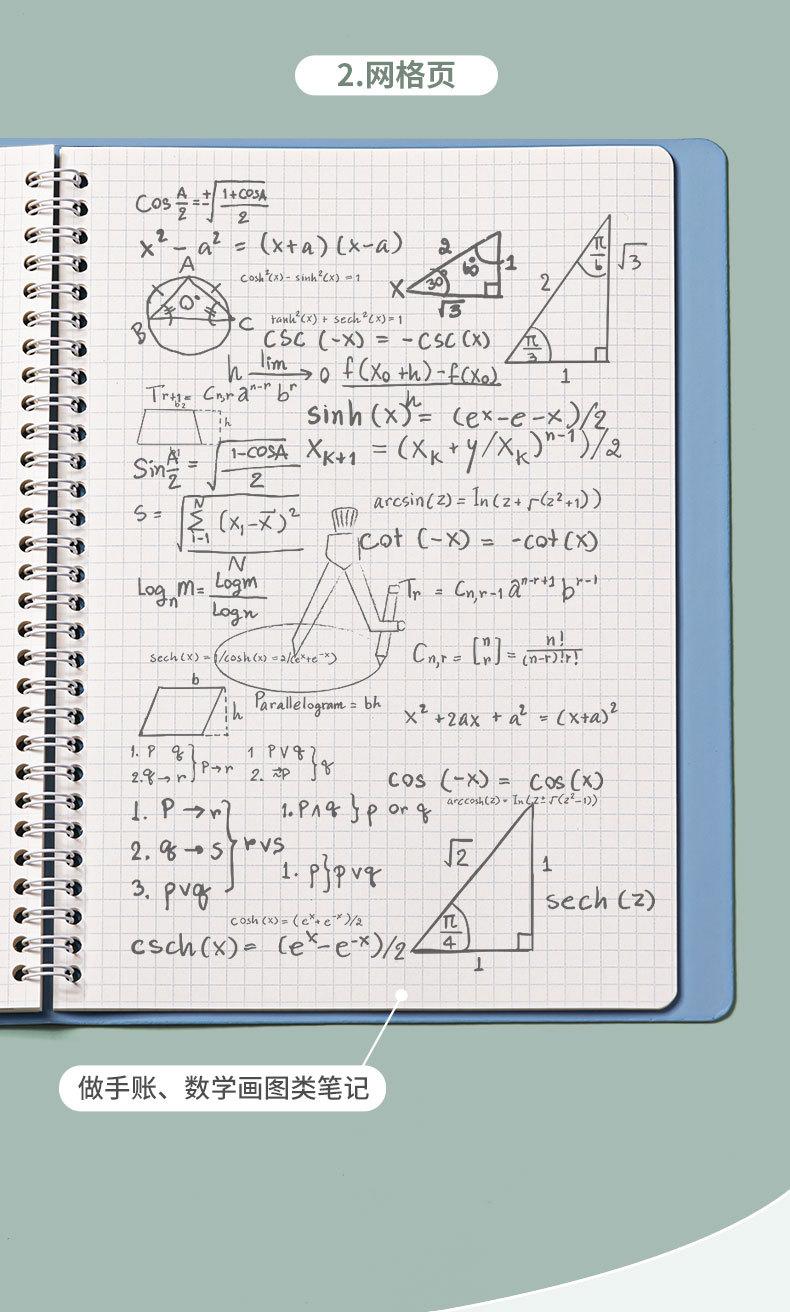 2.网格页
Cos A/2 = ±√(1+COSA)/2
x² - a² = (x+a) (x-a)
A
cosh²(x) - sinh²(x) = 1
O°
B
C
tanh²(x) + sech²(x) = 1
2
1
60°
30°
X
√3
π/6
√3
2
π/3
1
CSC (-x) = -CSC (x)
h lim → 0 f(x₀ + h) - f(x₀)
h
Tr+1 = Cn,r aⁿ⁻ʳ bʳ
b₂
h
sinh (x) = (ex - e - x)/2
Sin A/2 = √(1-COSA)/2
XK+1 = (XK + y/XK)ⁿ⁻¹)/2
arcsin(z) = In(z + √(z²+1))
S = √ N Σ i-1 (x₁ - x̄)²
N
cot (-x) = -cot (x)
Logₙ m = Logm/Logn
Tr = Cn,r-1 aⁿ⁻ʳ⁺¹ bʳ⁻¹
sech(x) = 1/cosh(x) = 2/(eˣ+e⁻ˣ)
Cn,r = [n r] = n!/(n-r)!r!
b
h
Parallelogram = bh
x² + 2ax + a² = (x+a)²
1. P q
2. q → r } P→r
1 P V q
2. ~P } q
cos (-x) = cos (x)
arccosh(z) = In(z ± √(z²-1))
1. P → r
2. q → s
3. p v q
} r v s
1. P∧q } p or q
1. p } p v q
√2
1
π/4
1
sech (z)
cosh (x) = (eˣ + e⁻ˣ)/2
csch (x) = (eˣ - e⁻ˣ)/2
做手账、数学画图类笔记